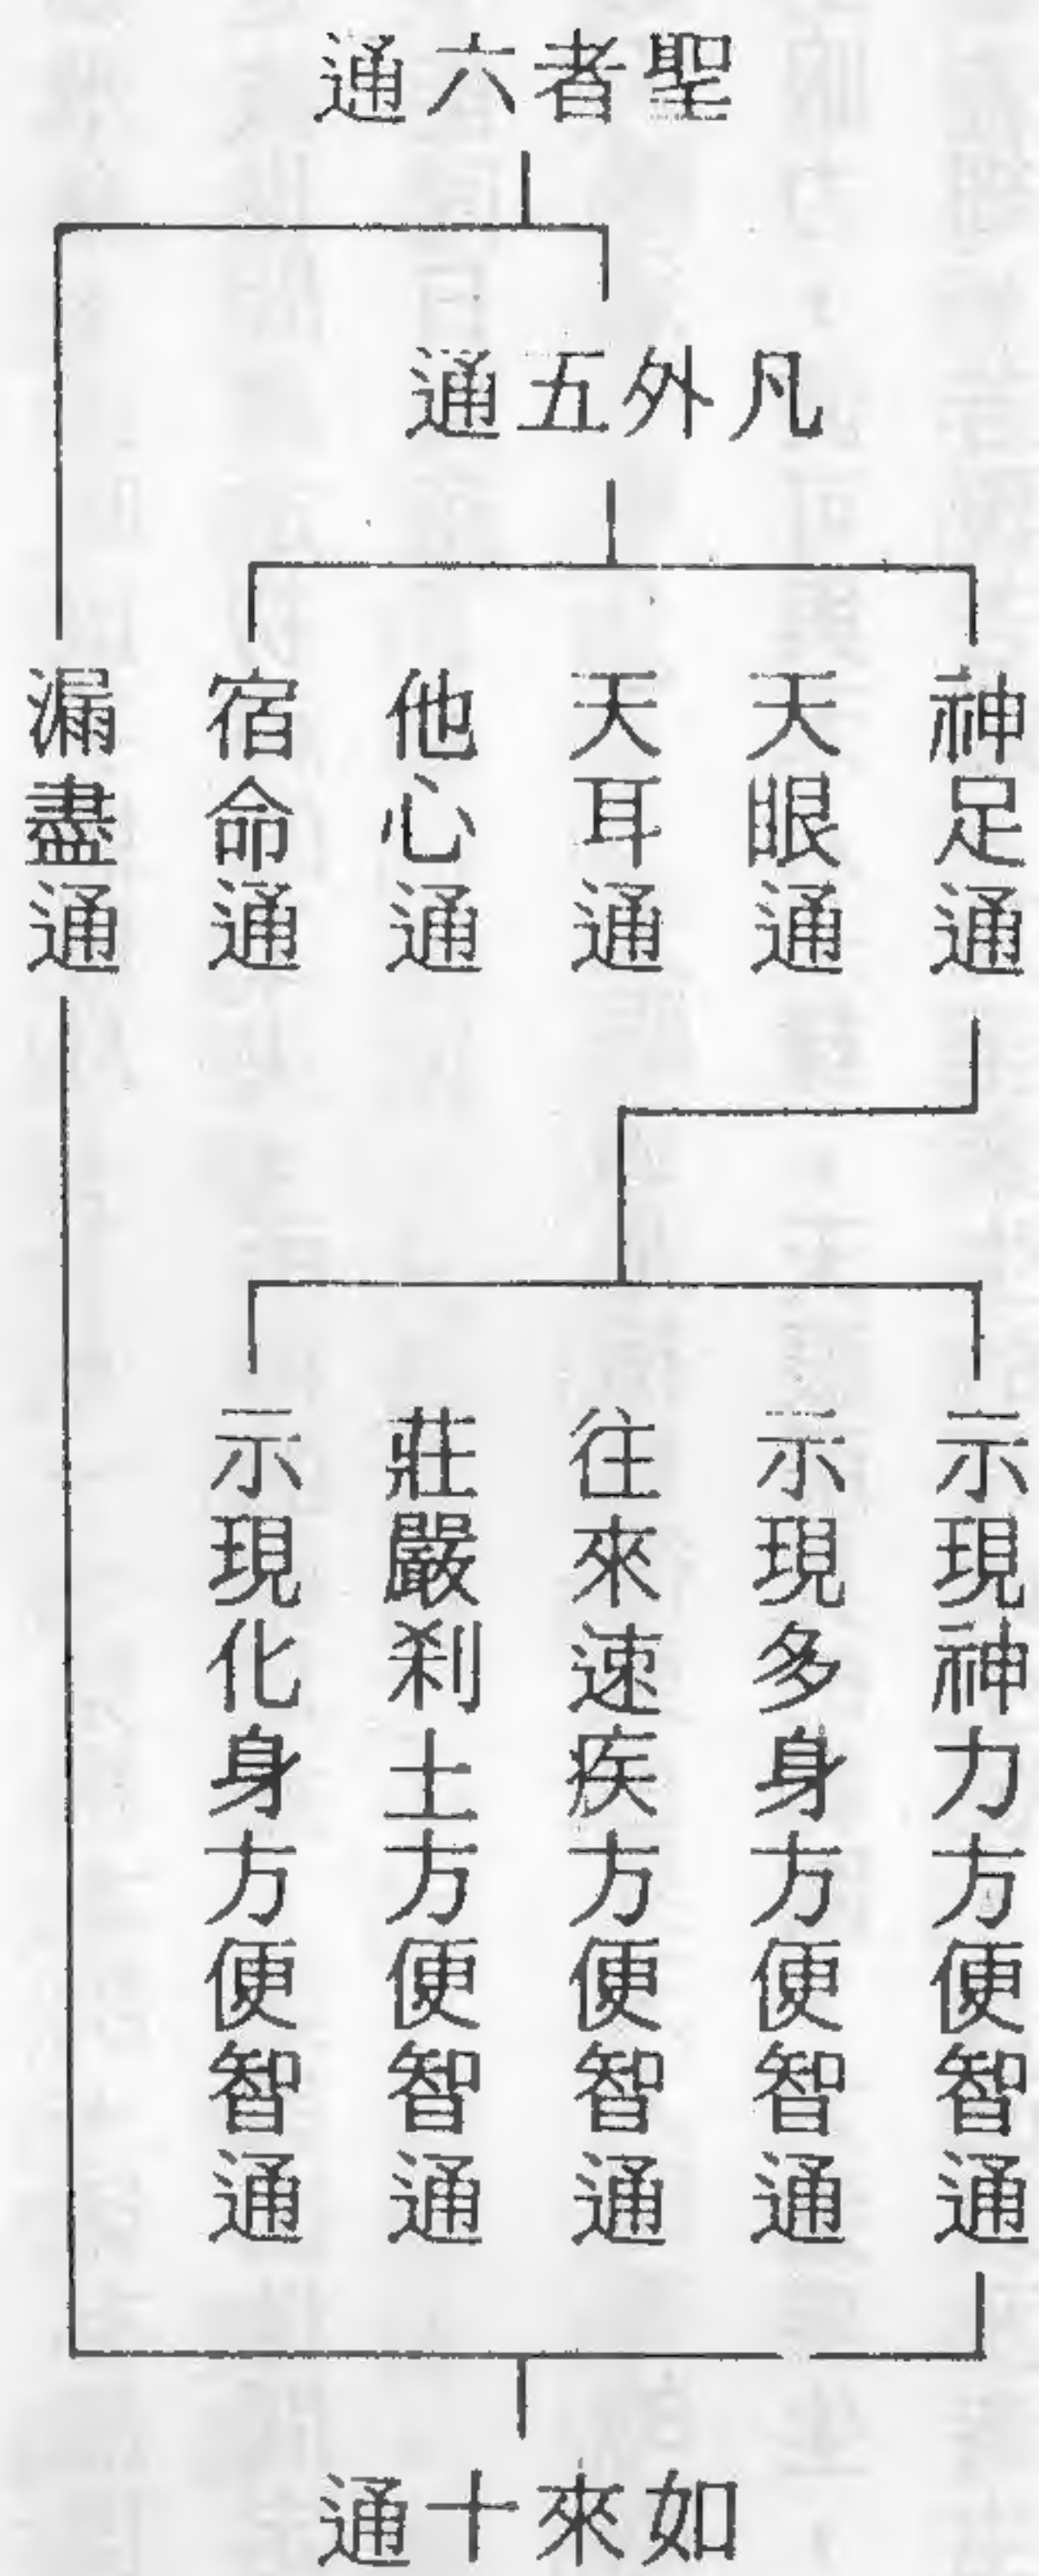 聖者六通
凡外五通
神足通
天眼通
天耳通
他心通
宿命通
漏盡通
示現神力方便智通
示現多身方便智通
往來速疾方便智通
莊嚴剎土方便智通
示現化身方便智通
如來十通